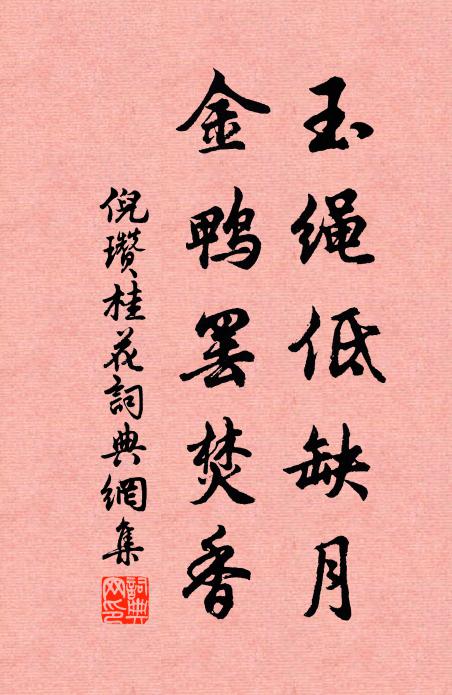 玉绳低缺月
金鸭罢焚香
倪瓒桂花詞典網集
詞典网印